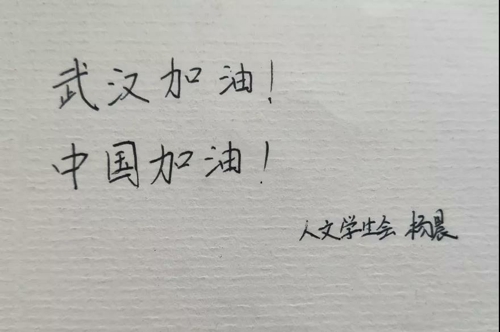 武汉加油!
中国加油!
人文学生会 杨晨